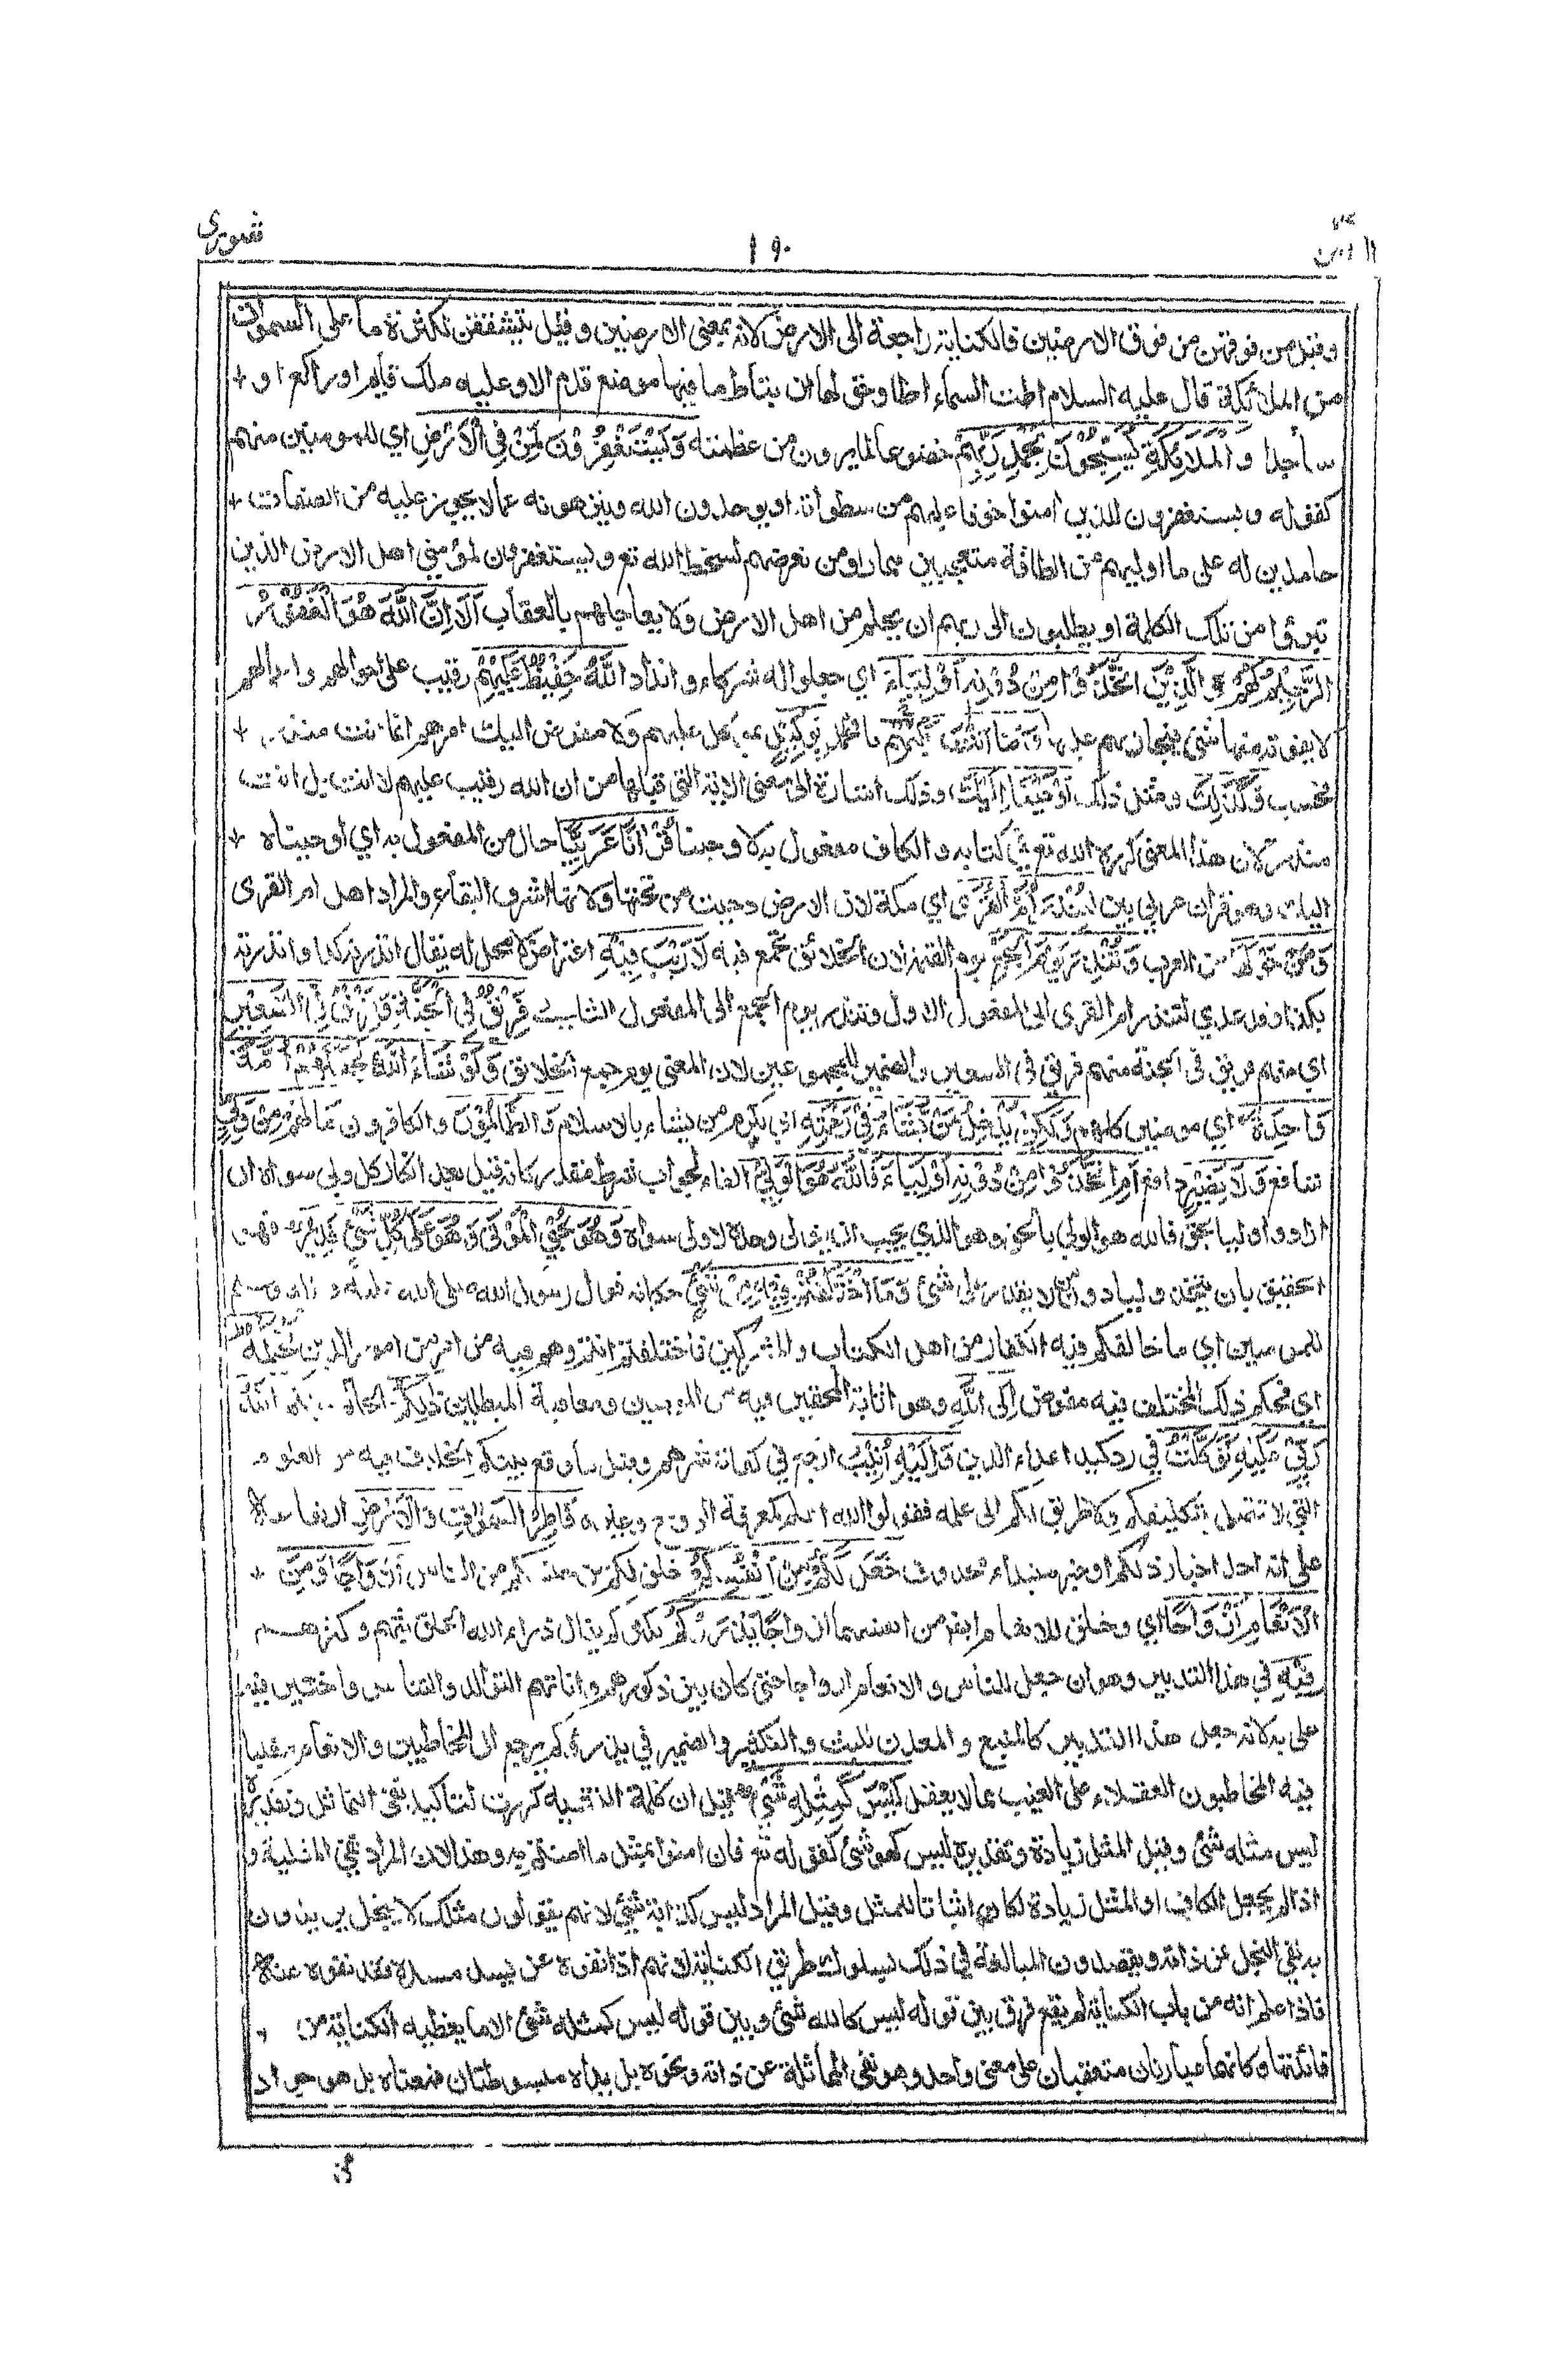 شورى
١٩٠
وقيل من فوقهن من فوق الارضين فالكناية راجعة الى الارض لانه بمعنى الارضين وقيل يتشققن لكثرة ما على السموات
من الملائكة قال عليه السلام اطت السماء اطا وحق لها ان يئط ما فيها موضع قدم الا وعليه ملك قايم او راكع او
ساجد وَالْمَلَائِكَةُ يُسَبِّحُونَ بِحَمْدِ رَبِّهِمْ خضوعا لما يرون من عظمته وَيَسْتَغْفِرُونَ لِمَنْ فِي الْأَرْضِ اي للمومنين منهم
كقوله ويستغفرون للذين امنوا خوفا عليهم من سطواته او يوحدون الله وينزهونه عما لا يجوز عليه من الصفات
حامدين له على ما اوليهم من الطافه متعجبين مما راو من تعرضهم لسخط الله تع ويستغفرون لمؤمني اهل الارض الذين
تبرؤا من تلك الكلمة او يطلبون الى ربهم ان يحلم من اهل الارض ولا يعاجلهم بالعقاب أَلَا إِنَّ اللَّهَ هُوَ الْغَفُورُ
الرَّحِيمُ وَالَّذِينَ اتَّخَذُوا مِنْ دُونِهِ أَوْلِيَاءَ اي جعلوا له شركاء وانداد اللَّهُ حَفِيظٌ عَلَيْهِمْ رقيب على احوالهم واعمالهم
لا يفوته منها شئ فيجازيهم عليها وَمَا أَنْتَ عَلَيْهِمْ يا محمد بِوَكِيلٍ بموكل عليهم ولا مفوض اليك امرهم انما انت منذر
فحسب وَكَذَلِكَ ومثل ذلك أَوْحَيْنَا إِلَيْكَ وذلك اشارة الى معنى الاية التي قبلها من ان الله رقيب عليهم لا انت بل انت
منذر لان هذا المعنى كرره الله تع في كتابه والكاف مفعول به لاوحينا قُرْآنًا عَرَبِيًّا حال من المفعول به اي اوحيناه
اليك وهو قران عربي بين لِتُنْذِرَ أُمَّ الْقُرَى اي مكة لان الارض دحيت من تحتها ولانها اشرف البقاع والمراد اهل ام القرى
وَمَنْ حَوْلَهَا من العرب وَتُنْذِرَ يَوْمَ الْجَمْعِ يوم القيمة لان الخلائق تجمع فيه لَا رَيْبَ فِيهِ اعتراض لا محل له يقال انذرته كذا وانذرته
بكذا وقد عدي لتنذر ام القرى الى المفعول الاول وتنذر يوم الجمع الى المفعول الثاني فَرِيقٌ فِي الْجَنَّةِ وَفَرِيقٌ فِي السَّعِيرِ
اي منهم فريق في الجنة ومنهم فريق في السعير والضمير للمجموعين لان المعنى يوم جمع الخلائق وَلَوْ شَاءَ اللَّهُ لَجَعَلَهُمْ أُمَّةً
وَاحِدَةً اي مومنين كلهم وَلَكِنْ يُدْخِلُ مَنْ يَشَاءُ فِي رَحْمَتِهِ اي يكرم من يشاء بالاسلام وَالظَّالِمُونَ والكافرون مَا لَهُمْ مِنْ وَلِيٍّ
شافع وَلَا نَصِيرٍ دافع أَمِ اتَّخَذُوا مِنْ دُونِهِ أَوْلِيَاءَ فَاللَّهُ هُوَ الْوَلِيُّ الفاء لجواب شرط مقدر كانه قيل بعد انكار كل ولي سواه ان
ارادوا وليا بحق فالله هو الولي بالحق وهو الذي يجب ان يتولى وحده لا ولي سواه وَهُوَ يُحْيِي الْمَوْتَى وَهُوَ عَلَى كُلِّ شَيْءٍ قَدِيرٌ فهو
الحقيق بان يتخذ وليا دون من لا يقدر على شئ وَمَا اخْتَلَفْتُمْ فِيهِ مِنْ شَيْءٍ حكاية قول رسول الله صلى الله عليه و اله وسلم
للمومنين اي ما خالفكم فيه الكفار من اهل الكتاب والمشركين فاختلفتم انتم وهم فيه من امر من امور الدين فَحُكْمُهُ
اي فحكم ذلك المختلف فيه مفوض إِلَى اللَّهِ وهو اثابة المحقين فيه من المومنين ومعاقبة المبطلين ذَلِكُمُ الحاكم اللَّهُ
رَبِّي عَلَيْهِ تَوَكَّلْتُ في رد كيد اعداء الدين وَإِلَيْهِ أُنِيبُ ارجع في كفاية شرهم وقيل ما وقع بينكم الخلاف فيه من العلوم
التي لا تتصل بتكليفكم ولا طريق لكم الى علمه فقولوا الله اعلم كمعرفة الروح وغيره فَاطِرُ السَّمَوَاتِ وَالْأَرْضِ ارتفاعه
على انه احد اخبار ذلكم او خبر مبتداء محذوف جَعَلَ لَكُمْ مِنْ أَنْفُسِكُمْ خلق لكم من جنسكم من الناس أَزْوَاجًا وَمِنَ
الْأَنْعَامِ أَزْوَاجًا اي وخلق للانعام ايضا من انفسها ازواجا يَذْرَؤُكُمْ يكثركم يقال ذراء الله الخلق بثهم وكثرهم
فِيهِ في هذا التدبير وهو ان جعل للناس والانعام ازواجا حتى كان بين ذكورهم واناثهم التوالد والتناسل واختير فيه
على به لانه جعل هذا التدبير كالمنبع والمعدن للبث والتكثير والضمير في يذرؤكم يرجع الى المخاطبين والانعام مغلبا
فيه المخاطبون العقلاء على الغيب مما لا يعقل لَيْسَ كَمِثْلِهِ شَيْءٌ قيل ان كلمة التشبيه كررت لتاكيد نفي التماثل وتقديره
ليس مثله شئ وقيل المثل زيادة وتقديره ليس كهو شئ كقوله تع فان امنوا بمثل ما امنتم به وهذا لان المراد نفي المثلية و
اذا لم يجعل الكاف او المثل زيادة لكان اثباتا للمثل وقيل المراد ليس كذاته شئ لانهم يقولون مثلك لا يبخل يريدون
به نفي البخل عن ذاته ويقصدون المبالغة في ذلك بسلوك طريق الكناية لانهم اذا نفوه عن يسد مسده فقد نفوه عنه
فاذا علم انه من باب الكناية لم يقع فرق بين قوله ليس كالله شئ وبين قوله ليس كمثله شئ الا ما يعطيه الكناية من
فائدتها وكانهما عبارتان متعقبتان على معنى واحد وهو نفي المماثلة عن ذاته ونحوه بل يداه مبسوطتان فمعناه بل هو جواد